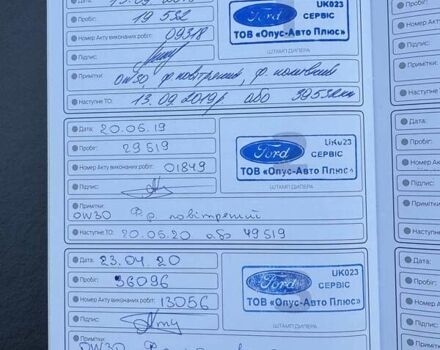 Пробіг: 19 532
Номер Акту виконаних робіт: 09318
Підпис:
Примітки:
0W30, ф. повітряний, ф. паливний
Наступне ТО: 13.09.2019р або 39532км
Ford
UK023
СЕРВІС
ТОВ «Опус-Авто Плюс»
ШТАМП ДИЛЕРА
Дата: 20.06.19
Пробіг: 29519
Номер Акту виконаних робіт: 01849
Підпис:
Примітки:
0W30 Ф.р. повітряний
Наступне ТО: 20.06.20 або 49519
Ford
UK023
СЕРВІС
ТОВ «Опус-Авто Плюс»
ШТАМП ДИЛЕРА
Дата: 23.04.20
Пробіг: 36096
Номер Акту виконаних робіт: 13056
Підпис:
Примітки:
0W30
Ford
UK023
СЕРВІС
ТОВ «Опус-Авто Плюс»
ШТАМП ДИЛЕРА